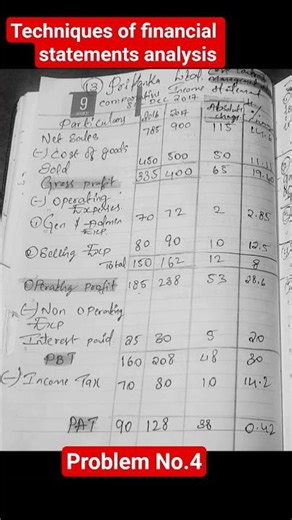 Techniques of financial
statements analysis
9
(13) Priyanka Ltd.
comparative Income statement
Dec 2017
Particulars 2016 2017 Absolute change
Net Sales 785 900 115
(-) Cost of goods
Sold 450 500 50 11.11
Gross profit 335 400 65
(-) Operating
Expenses.
① Gen & Admin Exp 70 72 2 2.85
② Selling Exp 80 90 10 12.5
Total 150 162 12 8
Operating profit 185 238 53 28.6
(-) Non operating
Exp
Interest paid 25 30 5 20
PBT 160 208 48 30
(-) Income Tax 70 80 10 14.2
PAT 90 128 38 0.42
Problem No.4